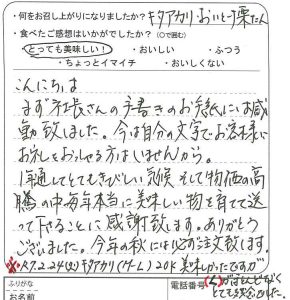 ・何をお召し上がりになりましたか？ キタアカリ・おいとけ栗たん
・食べたご感想はいかがでしたか？（○で囲む）
とっても美味しい！ ・おいしい ・ふつう
・ちょっとイマイチ ・おいしくない
こんにちは
まず社長さんの手書きのお手紙にいつも感
動致しました。今は自分の文字でお客様に
お礼をおっしゃる方はいませんから。
1年通してとてもきびしい気候 そして物価の高
騰の中毎年本当に美味しい物を育てて送
って下さることに感謝致します。ありがとう
ございました。今年の秋には必ず注文致します。
※R7.2.24(火)キタアカリ 20K 美味しかったですが
ふりがな
お名前
電話番号
とても残念でした。